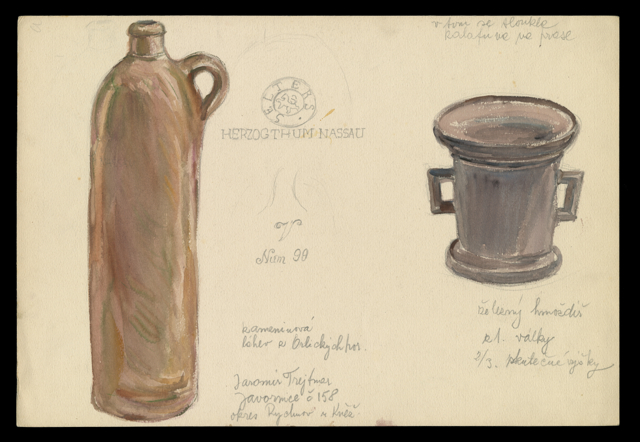 v tom se tloukla
kalafuna na prase
SELTERS
HERZOGTHUM NASSAU
Num 99
kameninová
láhev z Orlických hor.
Jaromír Trejtnar
Javornice č 158
okres Rychnov n Kněž.
železný hmoždíř
st. války
2/3 skutečné výšky